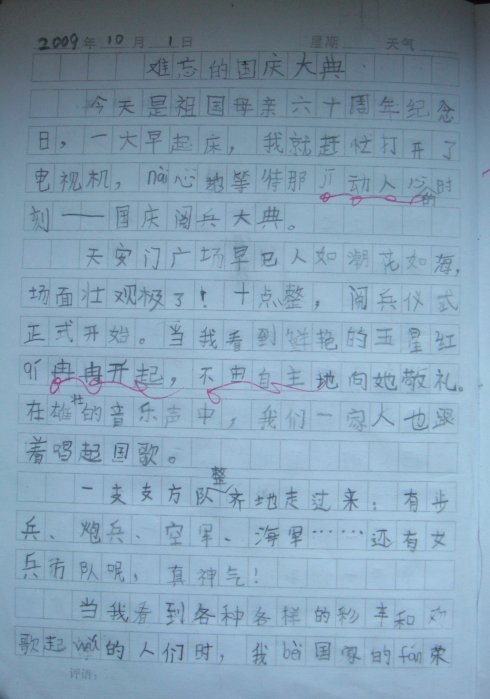 2009年10月1日 星期 天气
难忘的国庆大典
今天是祖国母亲六十周年纪念
日，一大早起床，我就赶忙打开了
电视机，nài心地等待那 jī动人心的时
刻——国庆阅兵大典。
天安门广场早已人如潮花如海，
场面壮观极了！十点整，阅兵仪式
正式开始。当我看到鲜艳的五星红
冉冉开起，不由自主地向她敬礼。
在雄壮的音乐声中，我们一家人也跟
着唱起国歌。
一支支方队整齐地走过来：有步
兵、炮兵、空军、海军……还有女
兵方队呢，真神气！
当我看到各种各样的彩车和
歌起 wǔ的人们时，我 bèi国家的fán荣
评语：